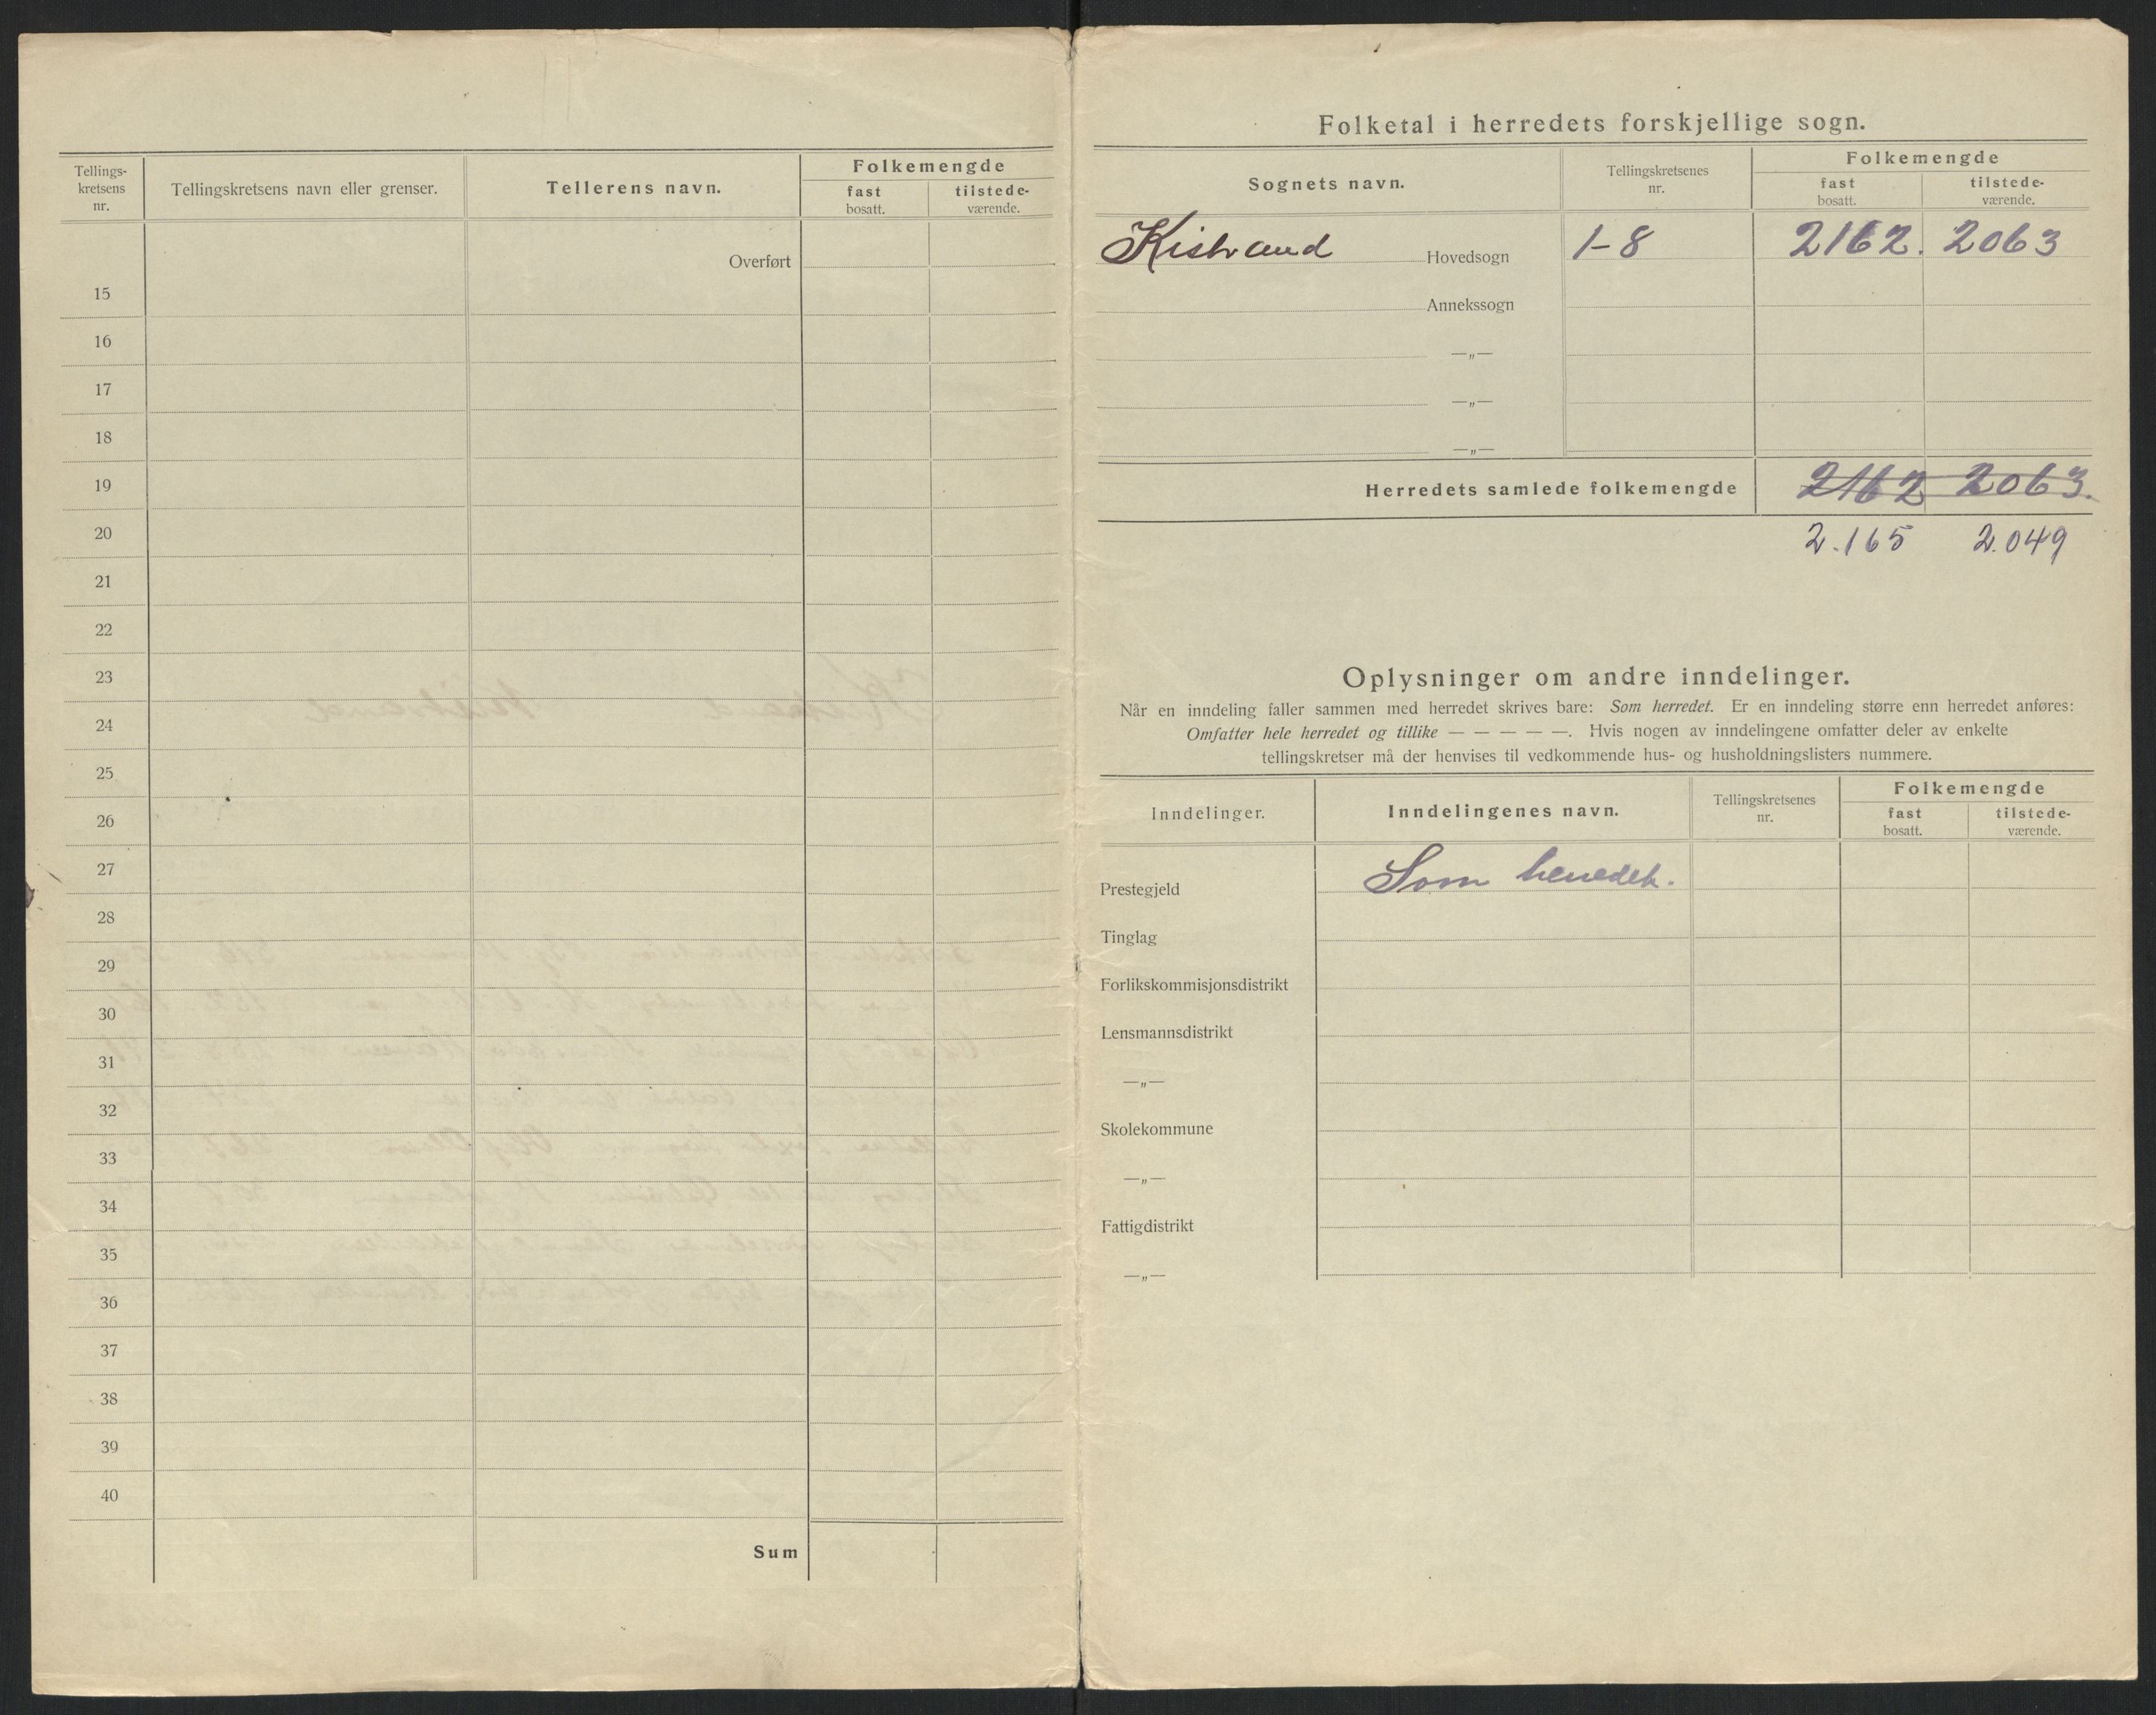 Tellings-
kretsens
nr.
Tellingskretsens navn eller grenser.
Tellerens navn.
Folkemengde
fast
bosatt.
tilstede-
værende.
Overført
15
16
17
18
19
20
21
22
23
24
25
26
27
28
29
30
31
32
33
34
35
36
37
38
39
40
Sum
Folketal i herredets forskjellige sogn.
Sognets navn.
Tellingskretsenes
nr.
Folkemengde
fast
bosatt.
tilstede-
værende.
Kistrand Hovedsogn 1-8 2162. 2063
Annekssogn
—„—
—„—
—„—
Herredets samlede folkemengde 2162 2063.
2.165 2.049
Oplysninger om andre inndelinger.
Når en inndeling faller sammen med herredet skrives bare: Som herredet. Er en inndeling større enn herredet anføres:
Omfatter hele herredet og tillike — — — — —. Hvis nogen av inndelingene omfatter deler av enkelte
tellingskretser må der henvises til vedkommende hus- og husholdningslisters nummere.
Inndelinger.
Inndelingenes navn.
Tellingskretsenes
nr.
Folkemengde
fast
bosatt.
tilstede-
værende.
Prestegjeld Som herredet.
Tinglag
Forlikskommisjonsdistrikt
Lensmannsdistrikt
—„—
Skolekommune
—„—
Fattigdistrikt
—„—